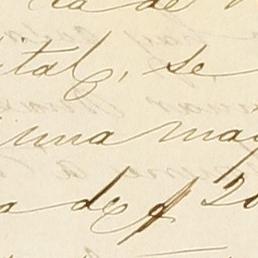 ca de
ital, se
una may
a de 20